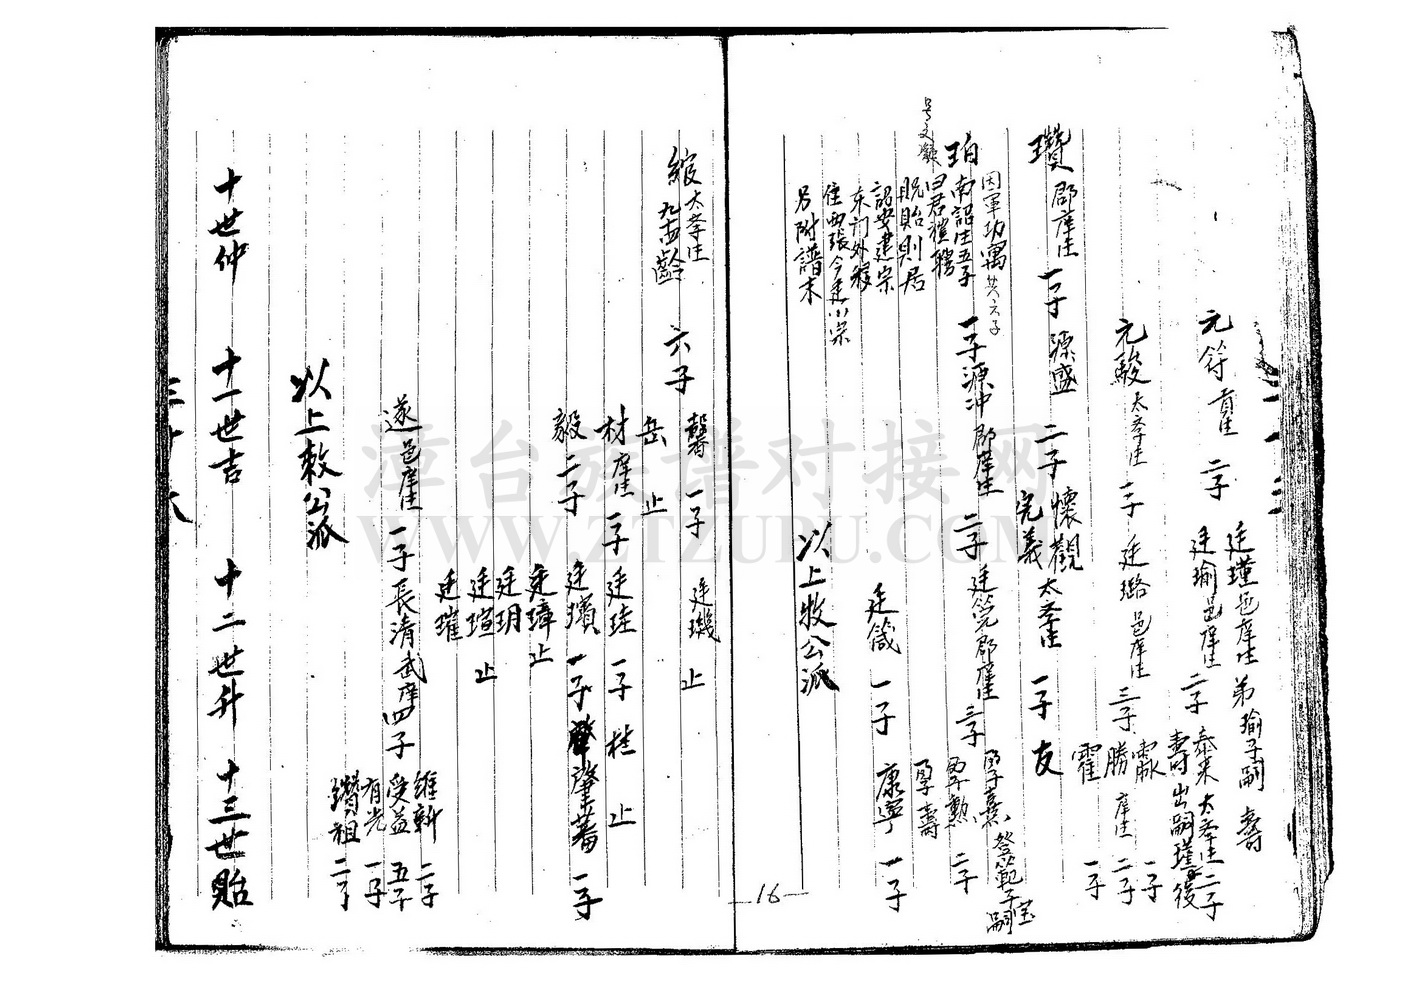 元符 貢生 二子
廷瑾 邑庠生 弟瑜子嗣 壽
廷瑜 邑庠生 二子
泰来 太孝生 二子
壽 出嗣瑾後
元駿 太孝生 一子 廷璐 邑庠生 三子
霖 一子
勝 庠生 二子
霍 一子
瓚 郡庠生 一子 源盛 二子
懷觀 太孝生 一子 友
完義
珀
因軍功寓 共六子
南詔生五子
曰君禮聘
貺貽則居
詔安建宗
东门外移
住西張今建小宗
另附譜末
号文
一子 源冲 郡庠生 二子
廷筦 郡庠生 三子
孚熹 登範子嗣
孚勲 二子
孚壽
廷箴 一子
康寧 一子
以上牧公派
16
綰 太孝生 六子
馨 一子 廷璣 止
岳 止
材 庠生 一子 廷珪 一子 桂 止
毅 二子
廷璸 一子 肇蕃 一子
廷璋 止
廷玥
廷瑄 止
廷璀
遂 邑庠生 一子 長清 武庠 四子
維新 二子
受益 五子
有光 一子
纘祖 二子
以上敕公派
十世仲 十一世吉 十二世升 十三世貽
漳台族谱对接网
WWW.ZTZUPU.COM